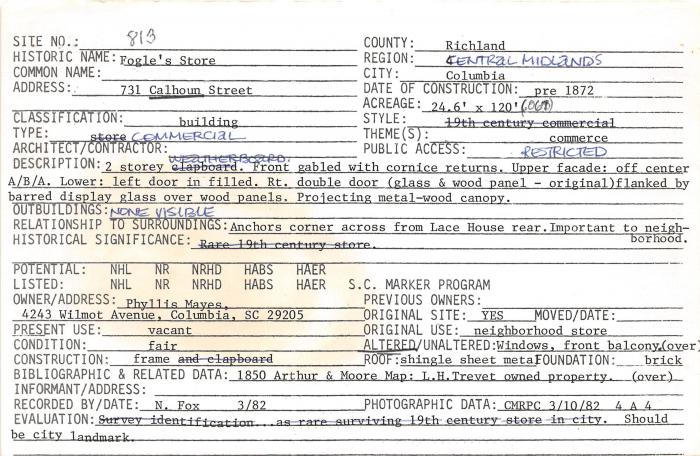 SITE NO.: 813
COUNTY: Richland
HISTORIC NAME: Fogle's Store
REGION: CENTRAL MIDLANDS
COMMON NAME:
CITY: Columbia
ADDRESS: 731 Calhoun Street
DATE OF CONSTRUCTION: pre 1872
ACREAGE: 24.6' x 120' (.068)
CLASSIFICATION: building
STYLE: 19th century commercial
TYPE: store COMMERCIAL
THEME(S): commerce
ARCHITECT/CONTRACTOR:
PUBLIC ACCESS: RESTRICTED
WEATHERBOARD.
DESCRIPTION: 2 storey clapboard. Front gabled with cornice returns. Upper facade: off center
A/B/A. Lower: left door in filled. Rt. double door (glass & wood panel - original)flanked by
barred display glass over wood panels. Projecting metal-wood canopy.
OUTBUILDINGS: NONE VISIBLE
RELATIONSHIP TO SURROUNDINGS: Anchors corner across from Lace House rear.Important to neigh-
borhood.
HISTORICAL SIGNIFICANCE: Rare 19th century store.
POTENTIAL: NHL NR NRHD HABS HAER
LISTED: NHL NR NRHD HABS HAER S.C. MARKER PROGRAM
OWNER/ADDRESS: Phyllis Mayes,
PREVIOUS OWNERS:
4243 Wilmot Avenue, Columbia, SC 29205
ORIGINAL SITE: YES MOVED/DATE:
PRESENT USE: vacant
ORIGINAL USE: neighborhood store
CONDITION: fair
ALTERED/UNALTERED: Windows, front balcony,(over)
CONSTRUCTION: frame and clapboard
ROOF: shingle sheet metal FOUNDATION: brick
BIBLIOGRAPHIC & RELATED DATA: 1850 Arthur & Moore Map: L.H.Trevet owned property. (over)
INFORMANT/ADDRESS:
RECORDED BY/DATE: N. Fox 3/82
PHOTOGRAPHIC DATA: CMRPC 3/10/82 4 A 4
EVALUATION: Survey identification...as rare surviving 19th century store in city. Should
be city landmark.